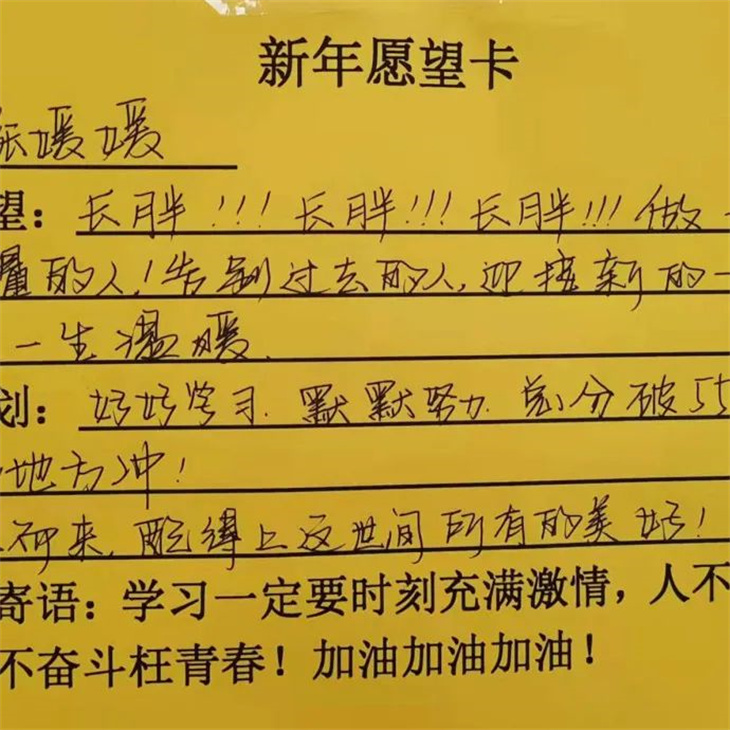 新年愿望卡
张媛媛
望：长胖！！！长胖！！！长胖！！！做一
量的人！告别过去的人，迎接新的一
一生温暖.
划：好好学习.默默努力.总分破55
地方冲！
来，配得上这世间所有的美好！
寄语：学习一定要时刻充满激情，人不
不奋斗枉青春！加油加油加油！